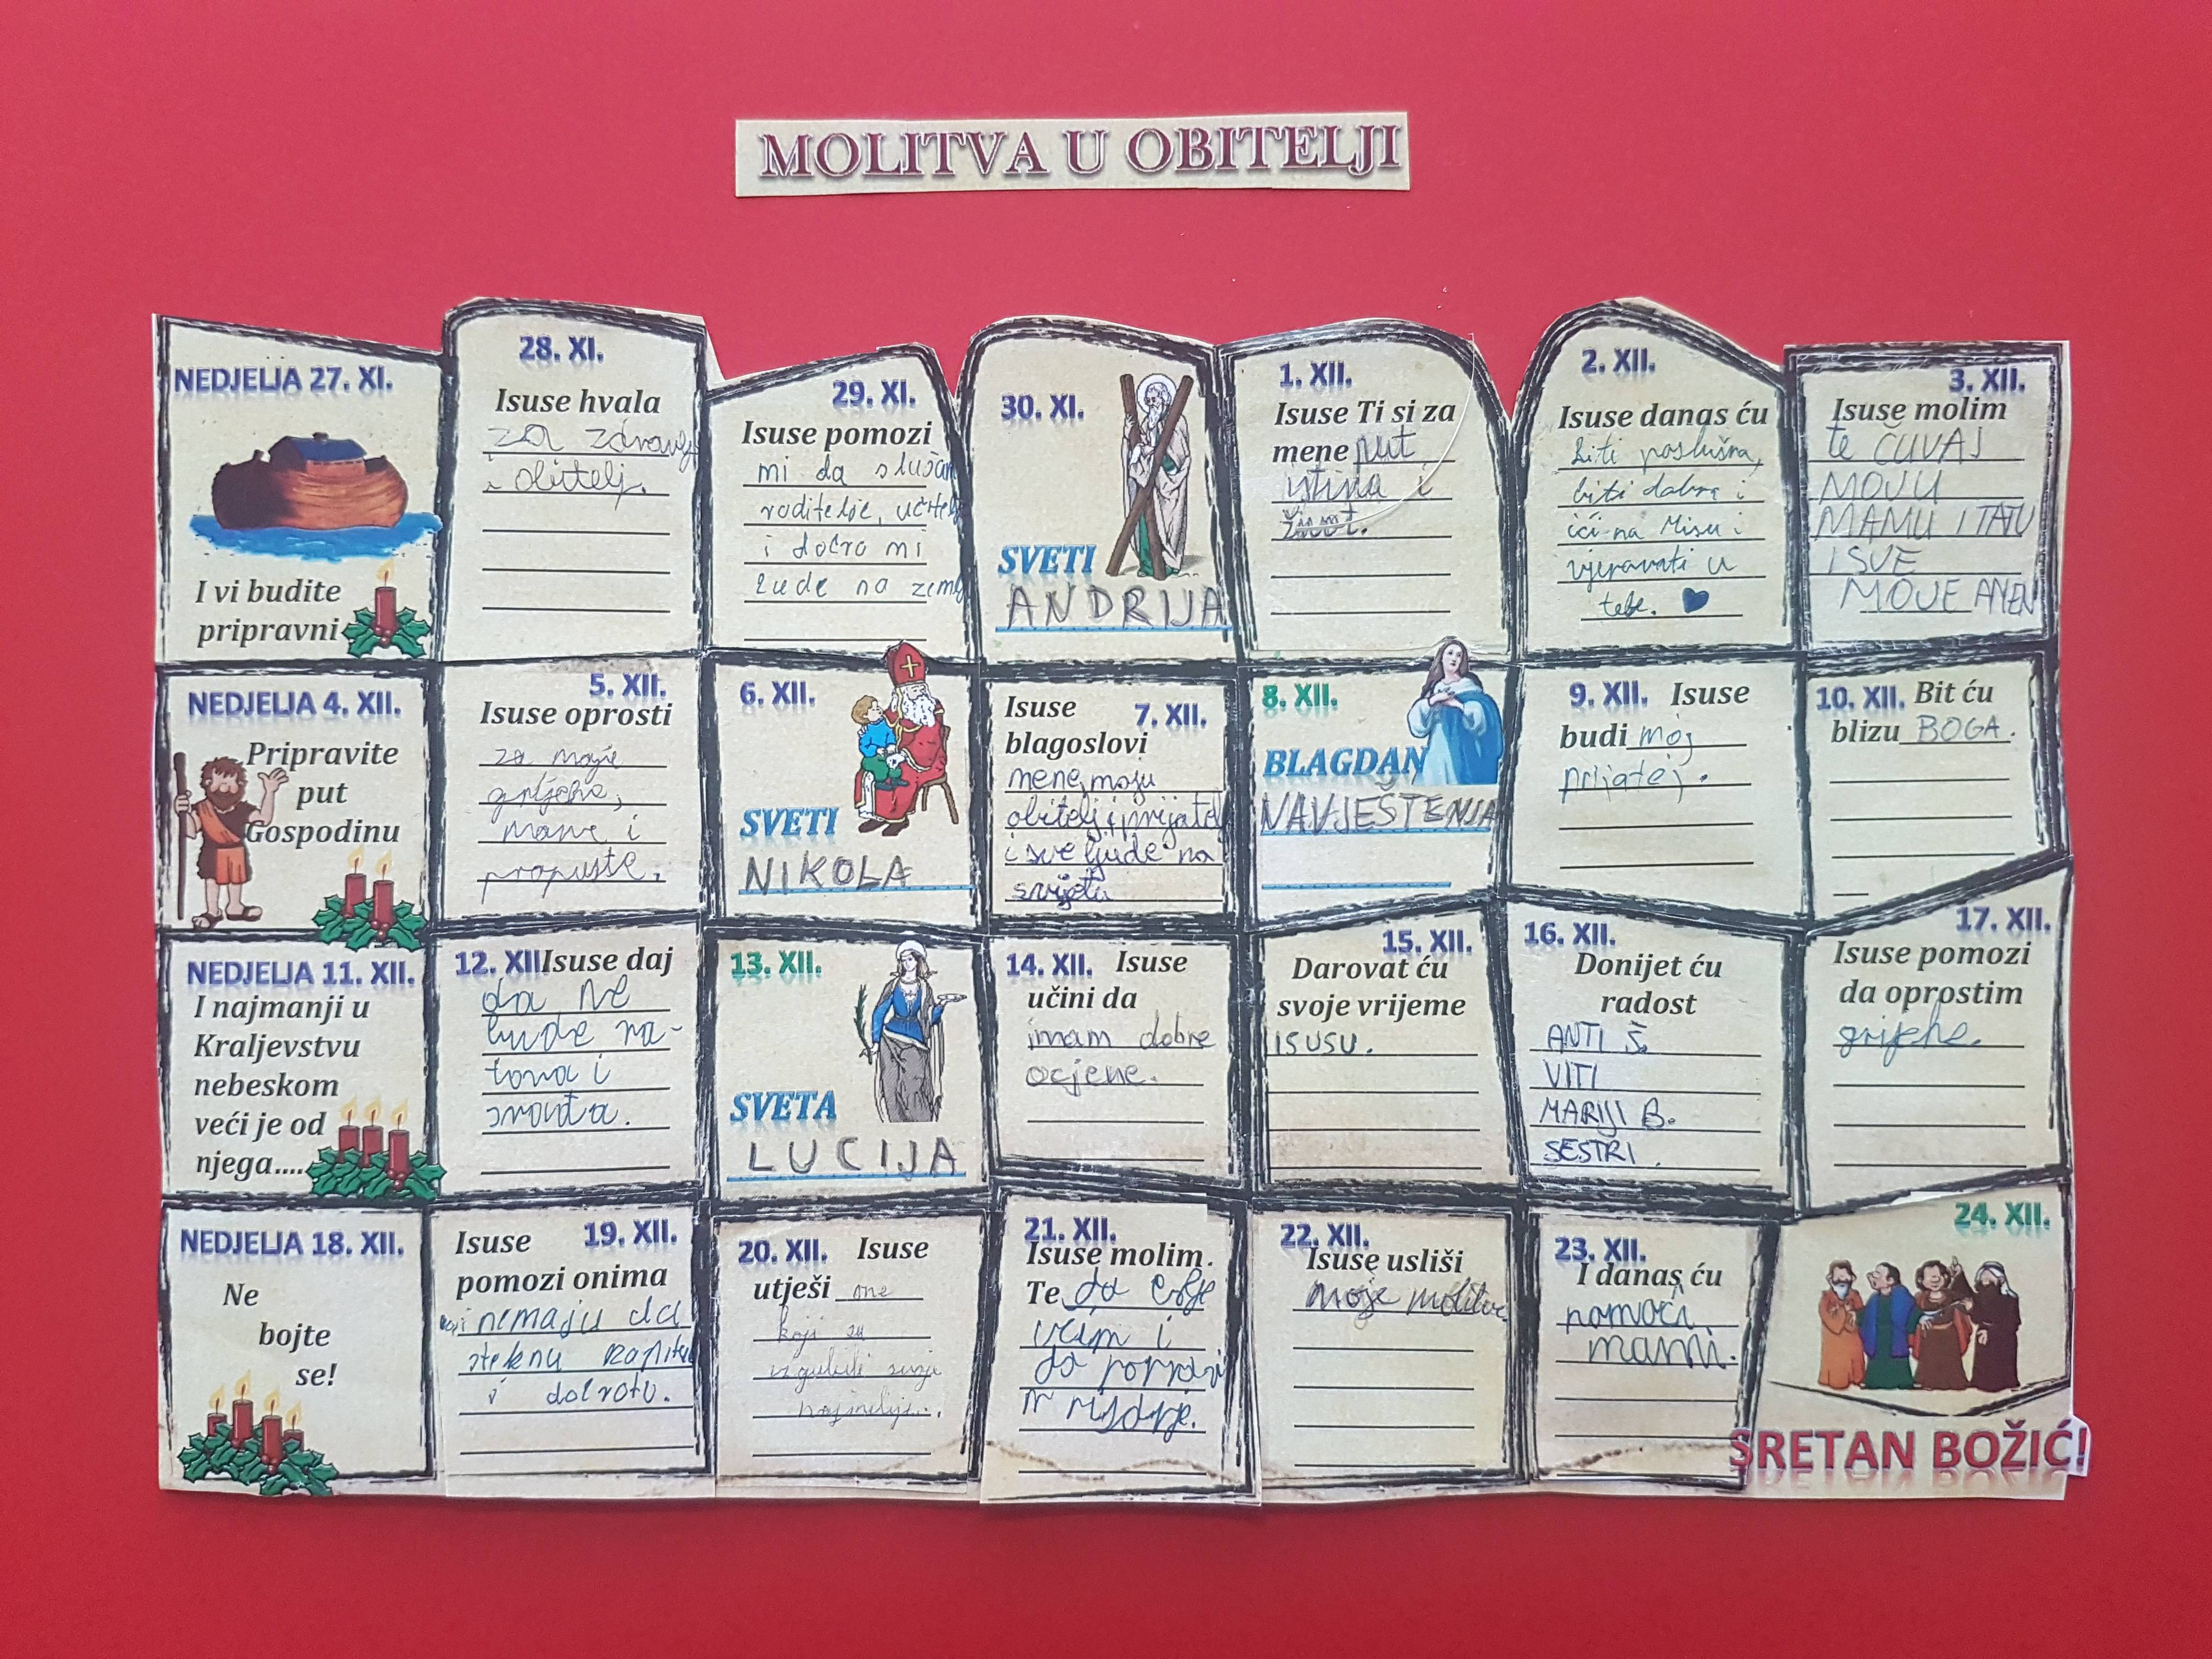 MOLITVA U OBITELJI
NEDJELJA 27. XI.
I vi budite
pripravni
28. XI.
Isuse hvala
za zdravlj
i obitelj.
29. XI.
Isuse pomozi
mi da slušam
roditelje, učitelj
i dobro mi
bude na zemlj
30. XI.
SVETI
ANDRIJA
1. XII.
Isuse Ti si za
mene put
istina i
život.
2. XII.
Isuse danas ću
biti poslušna,
biti dobra i
ići na Misu i
vjeravati u
tebe.
3. XII.
Isuse molim
te ČUVAJ
MOJU
MAMU I TATU
I SVE
MOJE AMEN
NEDJELJA 4. XII.
Pripravite
put
Gospodinu
5. XII.
Isuse oprosti
za moje
grijehe,
mane i
propuste.
6. XII.
SVETI
NIKOLA
Isuse 7. XII.
blagoslovi
mene, moju
obitelj, i prijatelj
i sve ljude na
svijetu
8. XII.
BLAGDAN
NAVJEŠTENJA
9. XII. Isuse
budi moj
prijatej.
10. XII. Bit ću
blizu BOGA.
NEDJELJA 11. XII.
I najmanji u
Kraljevstvu
nebeskom
veći je od
njega....
12. XII Isuse daj
da ne
bude ra-
tova i
13. XII.
SVETA
LUCIJA
14. XII. Isuse
učini da
imam dobre
ocjene.
15. XII.
Darovat ću
svoje vrijeme
ISUSU.
16. XII.
Donijet ću
radost
ANTI Š.
VITI
MARIJI B.
SESTRI.
17. XII.
Isuse pomozi
da oprostim
grijehe.
NEDJELJA 18. XII.
Ne
bojte
se!
Isuse 19. XII.
pomozi onima
koji nemaju da
steknu
i dobrotu.
20. XII. Isuse
utješi one
koji su
izgubili svoje
najmilije.
21. XII.
Isuse molim.
Te da bolje
učim i
da
22. XII.
Isuse usliši
moje molitve.
23. XII.
I danas ću
pomoći
mami.
24. XII.
SRETAN BOŽIĆ!